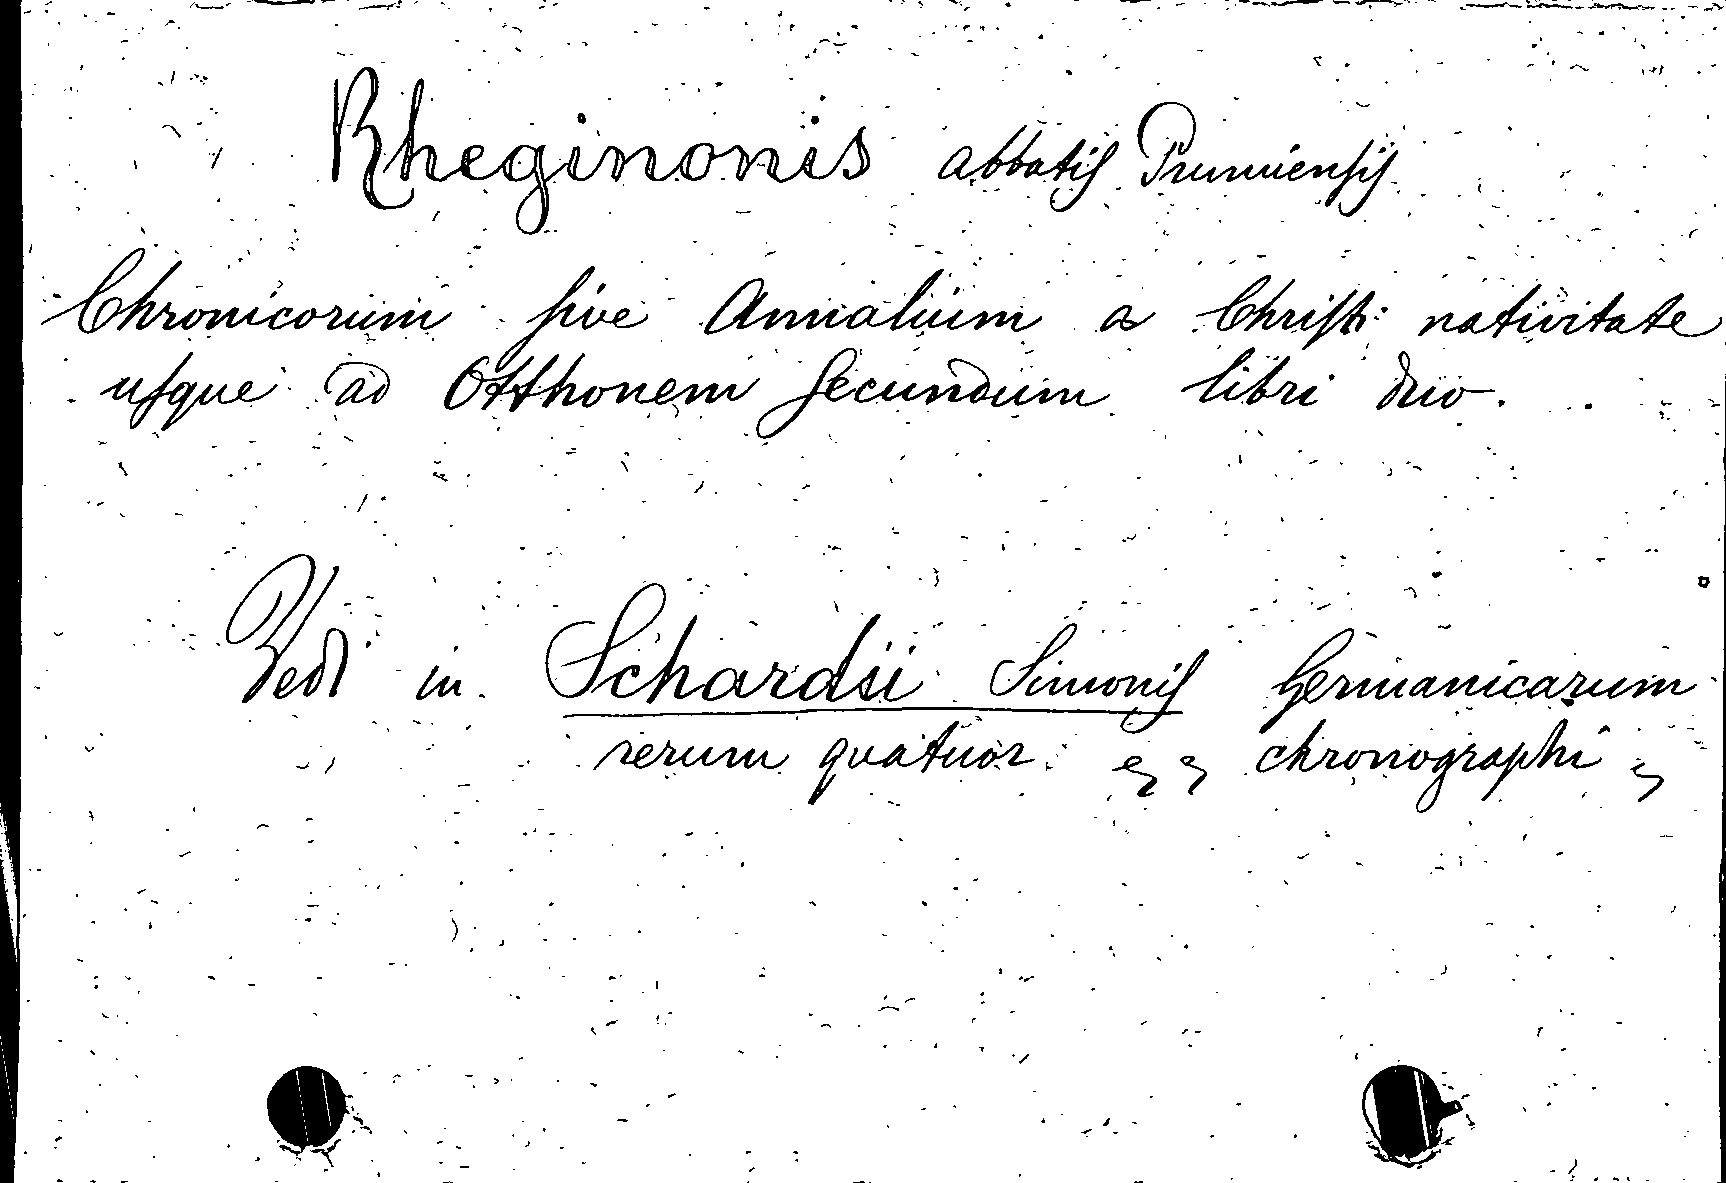 Rheginonis abbatis Prumiensis
Chronicorum sive Annalium a Christi nativitate
usque ad Otthonem secundum libri duo.
Vedi in Schardii Simonis Germanicarum
rerum quatuor chronographi